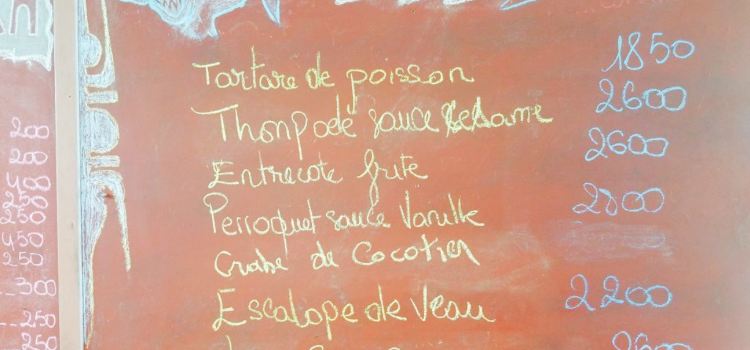 Tartare de poisson 1850
Thon poêlé sauce sesame 2600
Entrecote frite 2600
Perroquet sauce Vanille 2800
Crabe de Cocotier
Escalope de veau 2200
2600
200
200
400
250
250
450
250
300
250
250